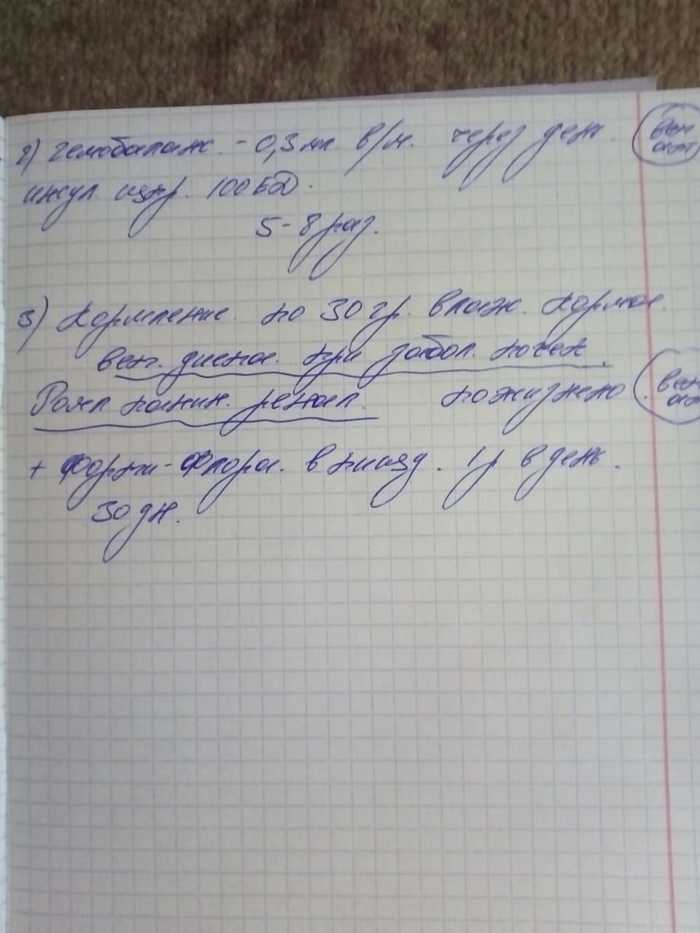 2) гемобаланс. - 0,3 мл в/м. через день. вет. апт.
инсул. шпр. 100 ЕД.
5-8 раз.
3) Кормление. по 30 гр. влаж. корма.
вет. диета. при забол. почек.
Роял канин. ренал. пожизнено. вет. апт.
+ Форти-Флора. в пищу. 1р в день.
30 дн.